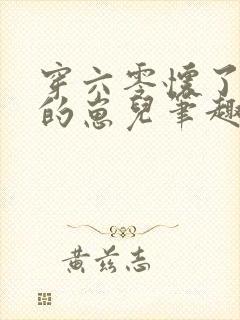 穿六零懷了
的崽兒筆趣
黃茲志